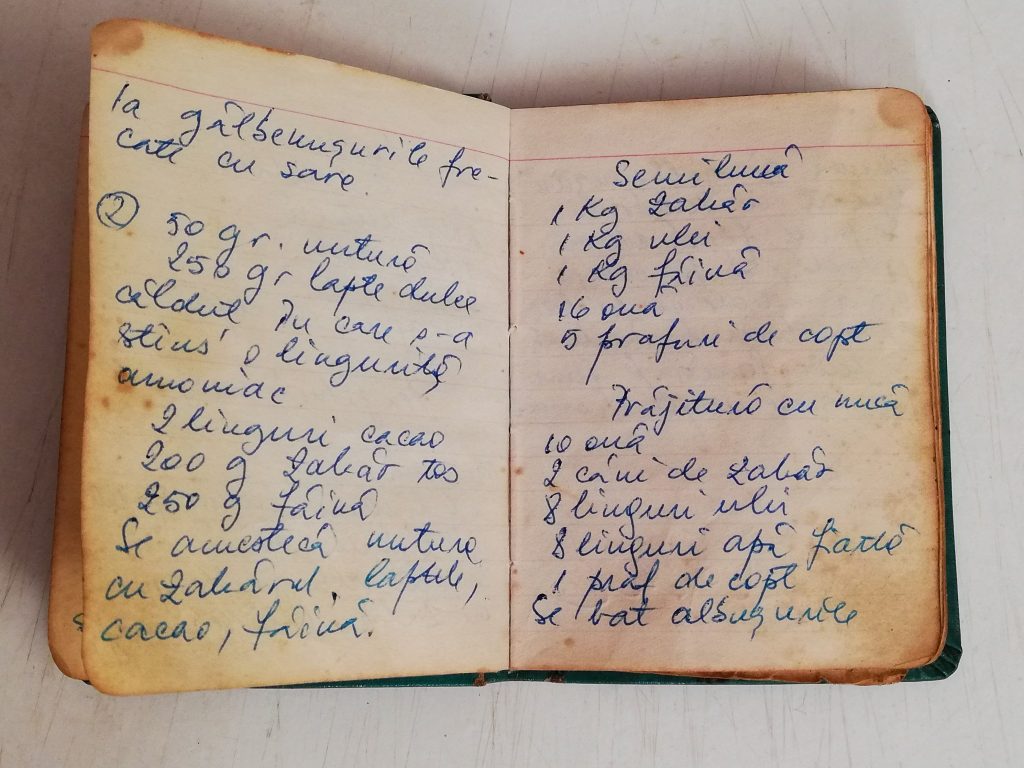 la gălbenușurile fre-
cate cu sare.
② 50 gr. untură
250 gr lapte dulce
căldut în care s-a
stins o linguriță
amoniac
2 linguri cacao
200 g zahăr tos
250 g făină
Se amestecă untura
cu zahărul, laptele,
cacao, făină.
Semilună
1 Kg zahăr
1 Kg ulei
1 Kg făină
16 ouă
5 prafuri de copt
Prăjitură cu nucă
10 ouă
2 căni de zahăr
8 linguri ulei
8 linguri apă fiartă
1 praf de copt
Se bat albușurile